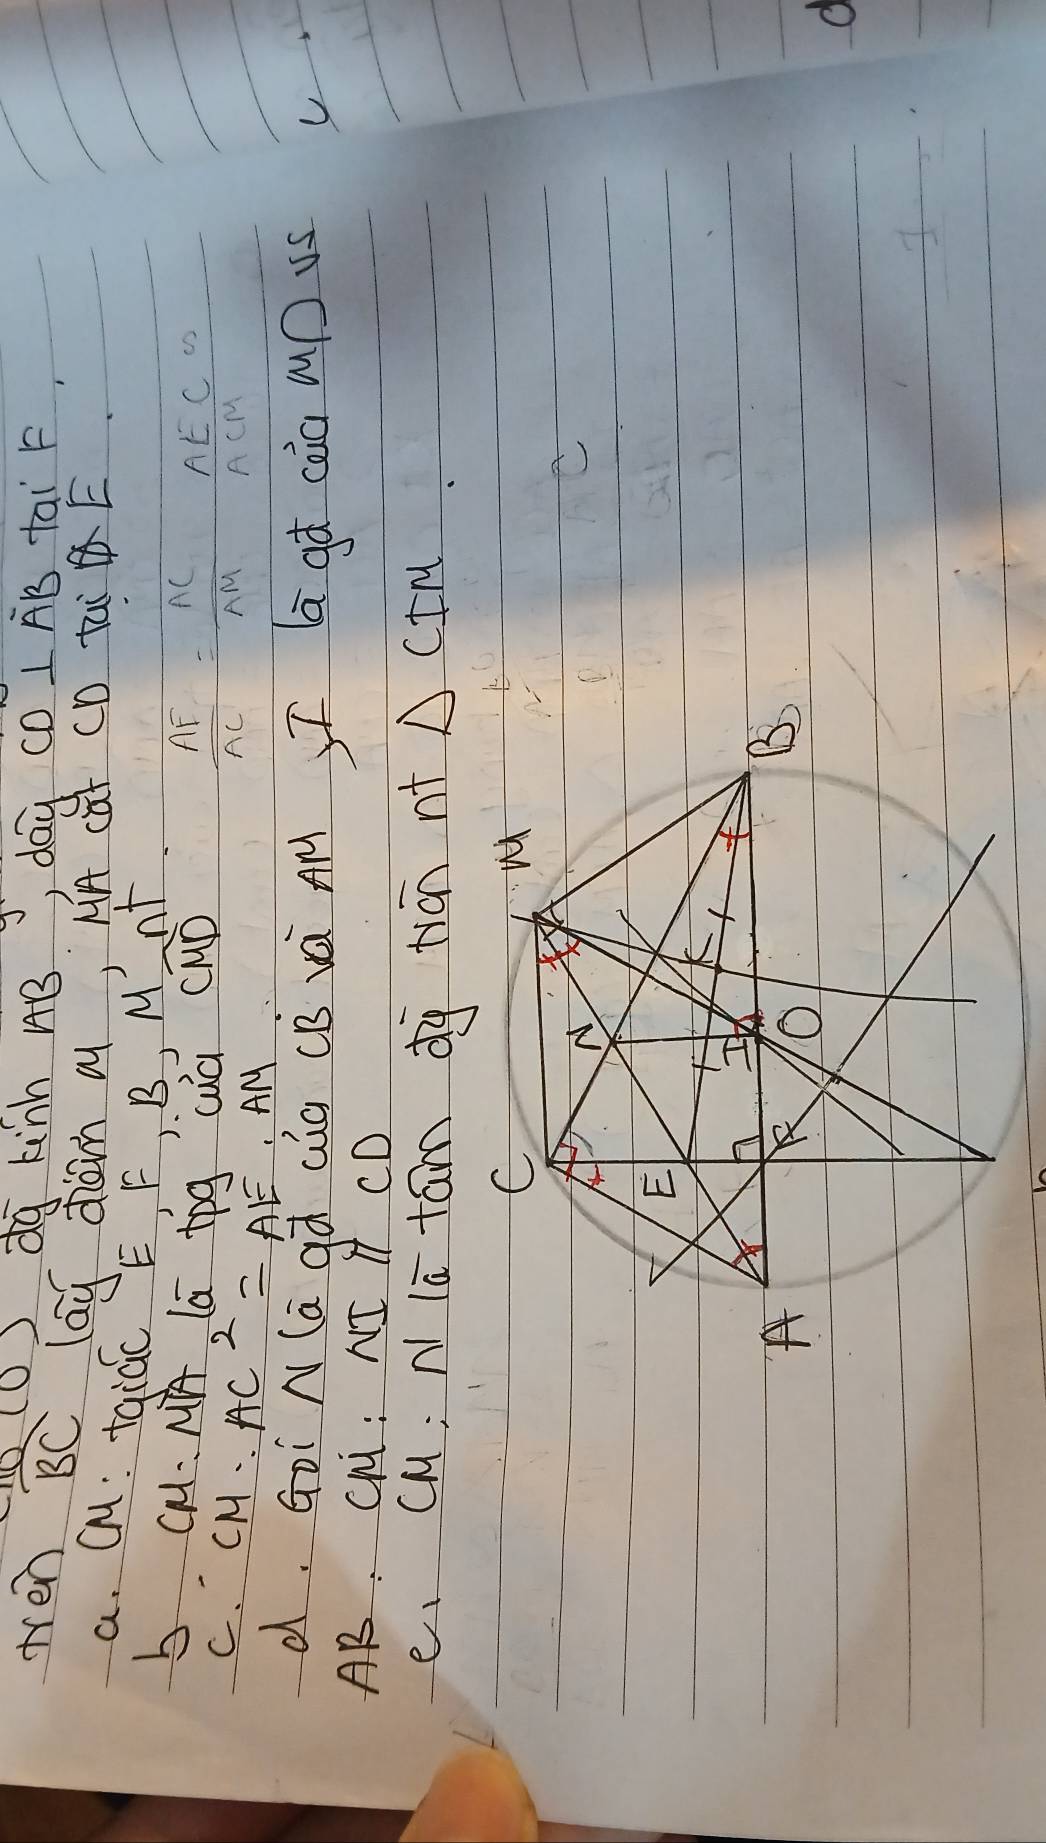 (O) đg kính AB, dây CD ⊥ AB tại F.
trên BC lấy điểm M, MA cắt CD tại E.
a. CM: tgiác E, F, B, M nt.
b CM: MA là tpg của CMD
c. CM: AC² = AE. AM
AF/AC = AC/AM AEC ∽ ACM
d. Gọi N là gđ của CB và AM, I là gđ của MD vs
AB. CM: NI // CD
e, CM: N là tâm đg tròn nt Δ CIM.
C M
N K
E I
A F O B